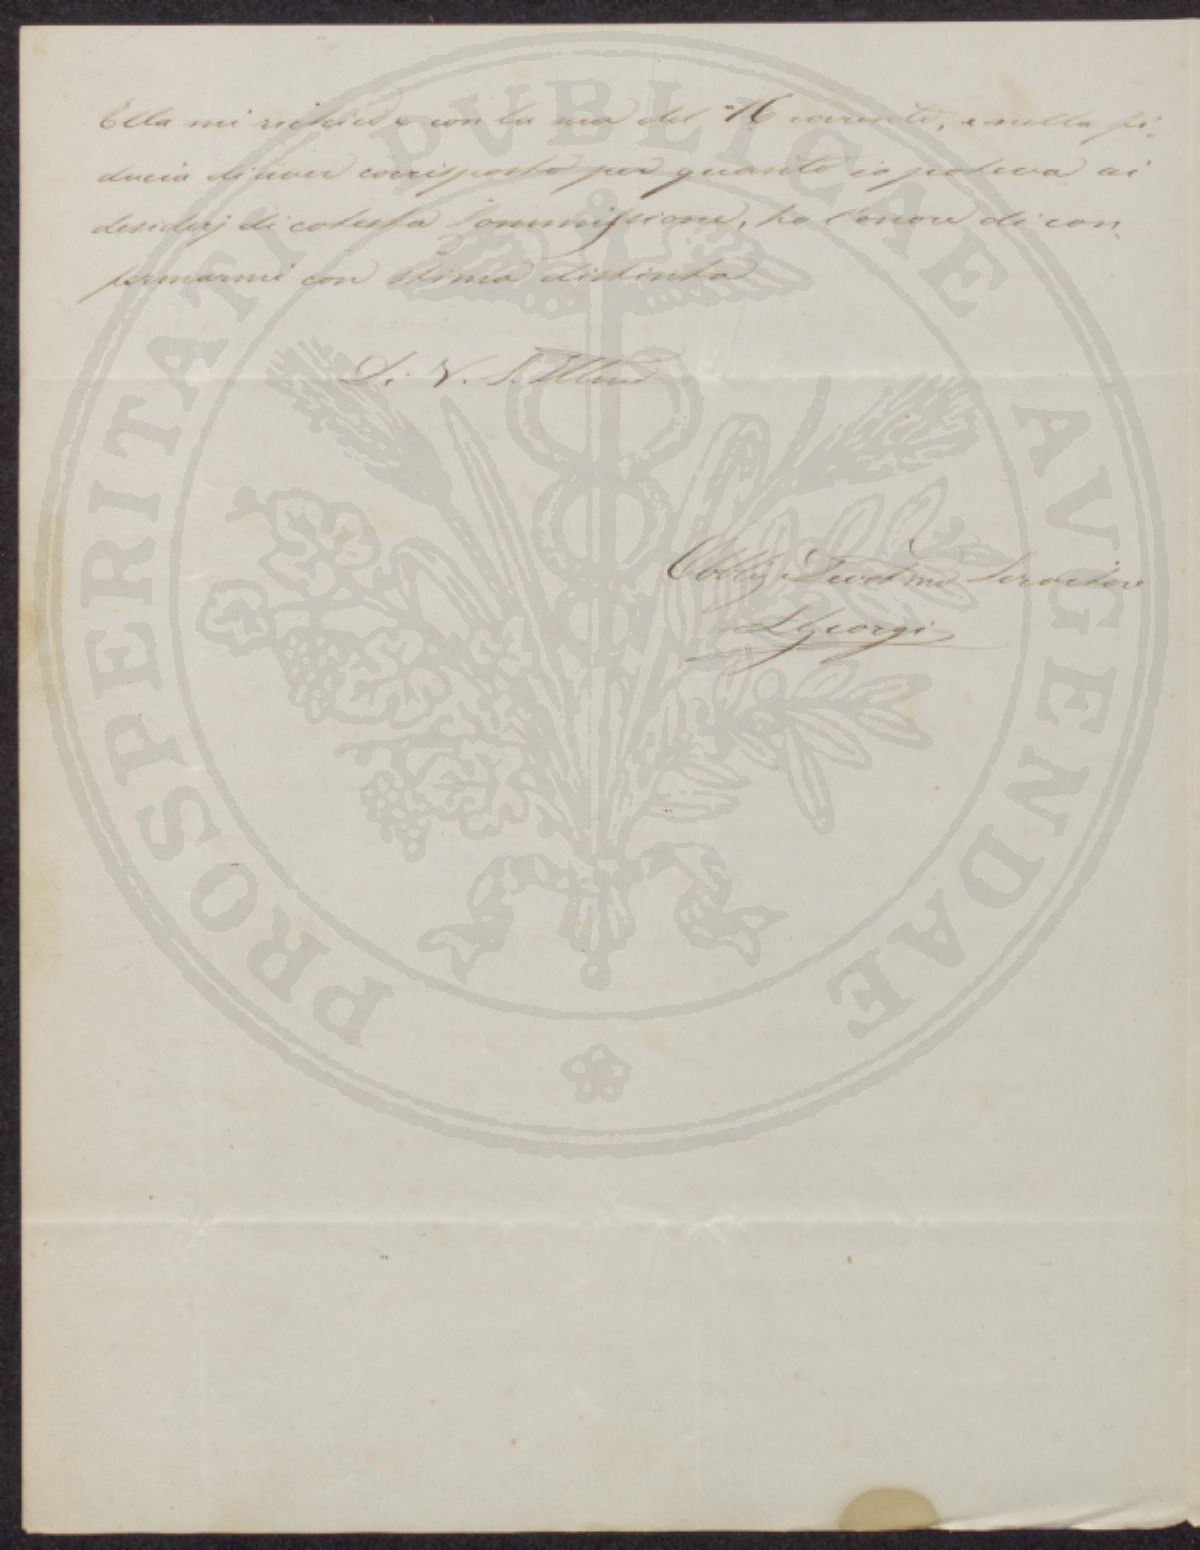 Ella mi richiede con la sua del 16 corrente, e nella fi-
ducia di aver corrisposto per quanto io poteva ai
desiderj di cotesta Commissione, ho l'onore di con-
fermarmi con stima distinta
D. V. S. Illma
Obblig Devotmo Servitore
LGeorgi
PROSPERITATI PVBLICAE AVGENDAE